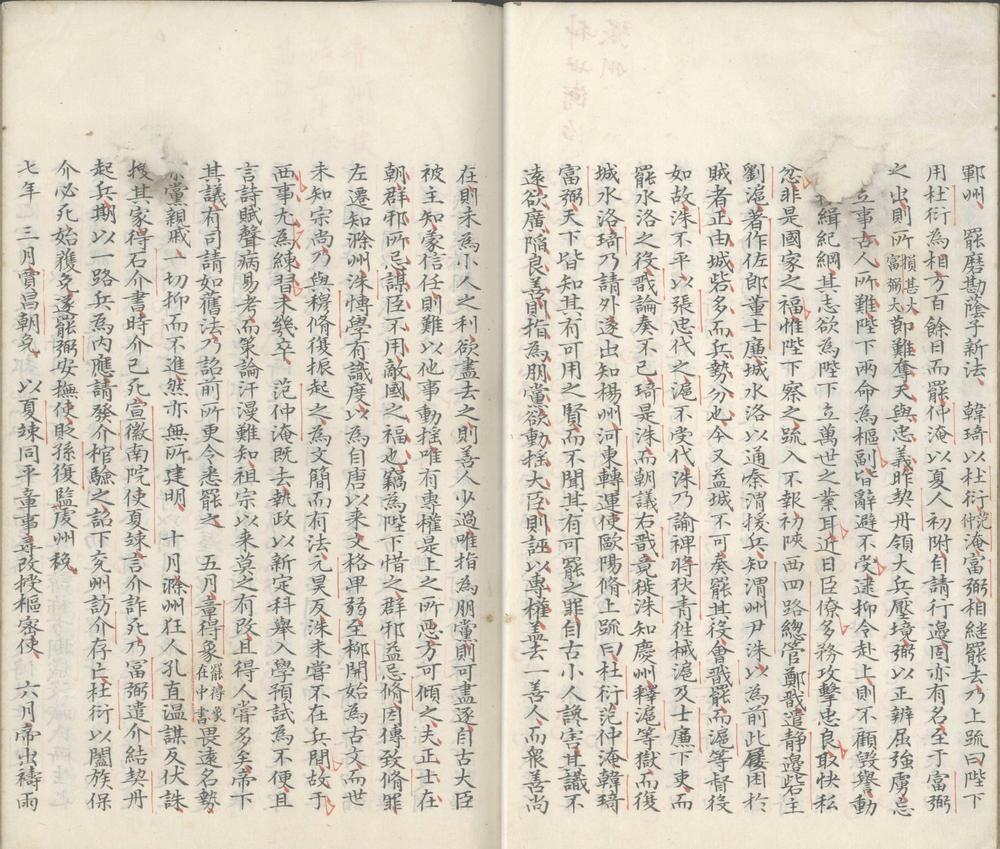 鄆州、罷磨勘蔭子新法、韓琦以杜衍范仲淹富弼相繼罷去乃上疏曰陛下
用杜衍為相方百餘日而罷仲淹以夏人初附自請行邊固亦有名至于富弼
之出則所損甚大富弼大節難奪天與忠義昨契丹領大兵壓境弼以正辨屈強虜忘
立事古人所難陛下兩命為樞副皆辭避不受逮抑令赴上則不顧毀譽動
緝紀綱其志欲為陛下立萬世之業耳近日臣僚多務攻擊忠良取快私
忿非是國家之福惟陛下察之疏入不報初陝西四路緫管鄭戩遣靜邊砦主
劉滬著作佐郎董士廉城水洛以通秦渭援兵知渭州尹洙以為前此屢困於
賊者正由城砦多而兵勢分也今又益城不可奏罷其役會戩罷而滬等督役
如故洙不平以張忠代之滬不受代洙乃諭裨將狄青徃械滬及士廉下吏而
罷水洛之役戩論奏不已琦是洙而朝議右戩竟徙洙知慶州釋滬等獄而復
城水洛琦乃請外遂出知楊州河東轉運使歐陽脩上疏曰杜衍范仲淹韓琦
富弼天下皆知其有可用之賢而不聞其有可罷之罪自古小人讒害其識不
遠欲廣陷良善則指為朋黨欲動揺大臣則誣以專權盖去一善人而衆善尚
在則未為小人之利欲盡去之則善人少過唯指為朋黨則可盡逐自古大臣
被主知蒙信任則難以他事動揺唯有專權是上之所惡方可傾之夫正士在
朝群邪所忌謀臣不用敵國之福也竊為陛下惜之群邪益忌脩因傅致脩罪
左遷知滁州洙博學有識度以為自唐以来文格卑弱至柳開始為古文而世
未知宗尚乃與穆脩復振起之為文簡而有法元昊反洙未嘗不在兵間故于
西事尤為練習未幾卒、范仲淹既去執政以新定科舉入學預試為不便且
言詩賦聲病易考而策論汗漫難知祖宗以来莫之有改且得人嘗多矣帝下
其議有司請如舊法乃詔前所更令悉罷之、五月章得象罷得象在中書畏遠名勢
黨親戚一切抑而不進然亦無所建明、十月滁州狂人孔直温謀反伏誅
搜其家得石介書時介已死宣徽南院使夏竦言介詐死乃富弼遣介結契丹
起兵期以一路兵為内應請發介棺驗之詔下兗州訪介存亡杜衍以闔族保
介必死始獲免遂罷弼安撫使貶孫復監虔州稅
七年、三月賈昌朝免、以夏竦同平章事尋改授樞密使、六月帝出禱雨